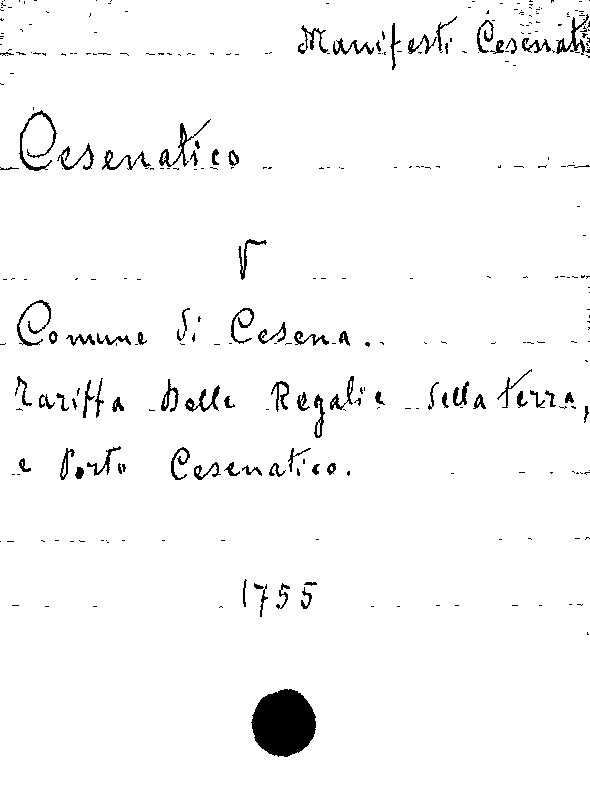 Manifesti Cesenati
Cesenatico
V
Comune di Cesena.
Tariffa Delle Regalie della terra,
e Porto Cesenatico.
1755